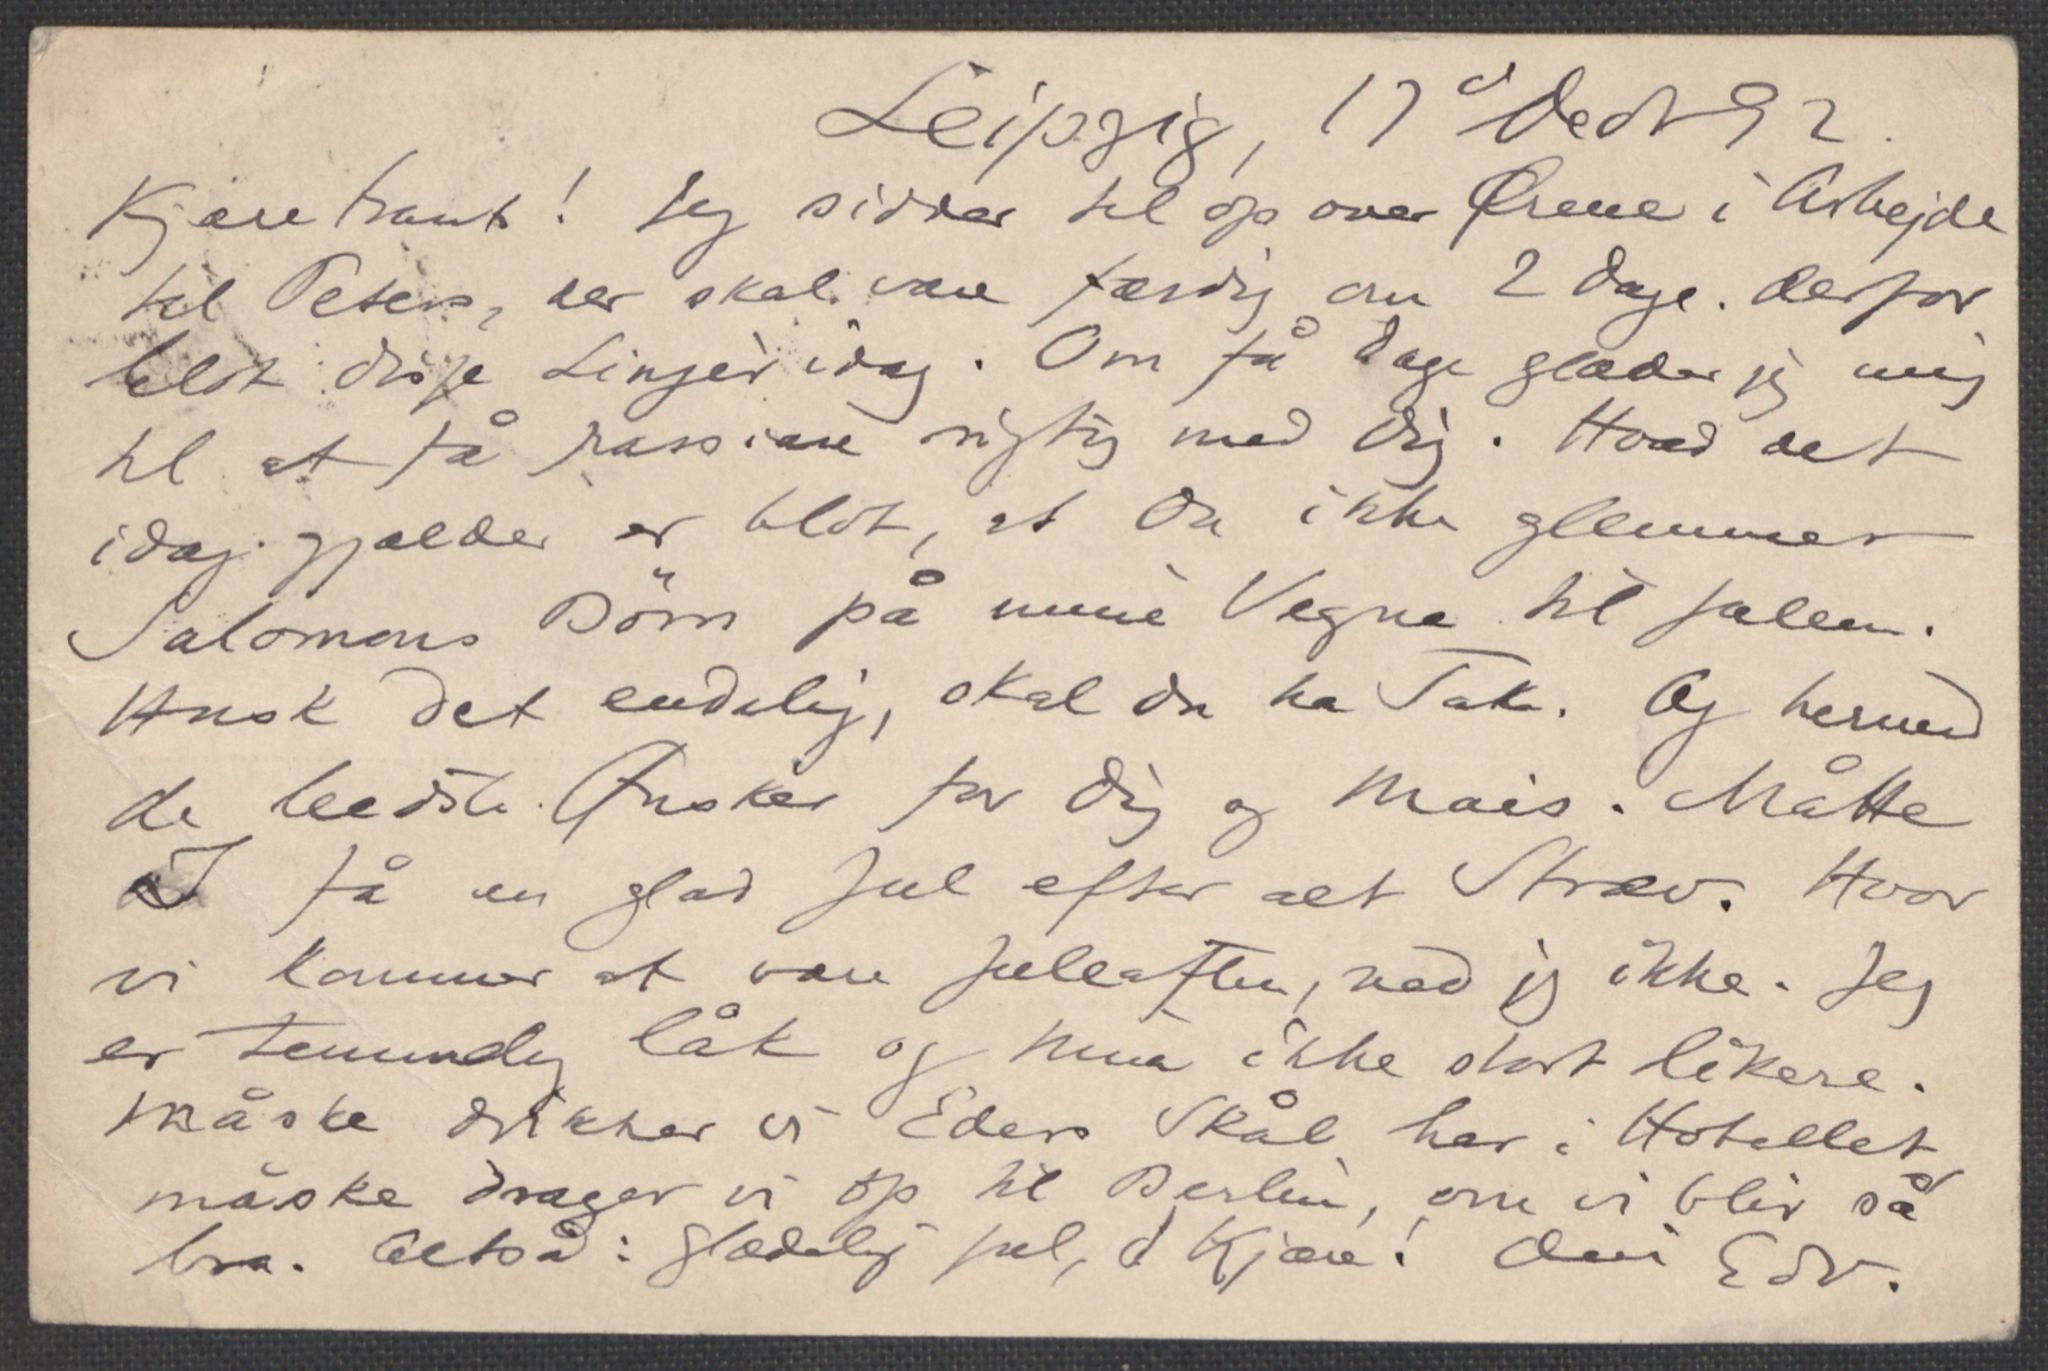 Leipzig, 17d Decbr 92.
Kjære Frants! Jeg sidder til op over Ørene i Arbejde
til Peters, der skal være færdig om 2 Dage. Derfor
blot disse Linjer idag. Om få Dage glæder jeg mig
til at få passiare rigtig med Dig. Hvad det
idag gjælder er blot, at Du ikke glemmer
Salomons Börn på mine Vegne til Julen.
Husk det endelig, skal Du ha Tak. Og hermed
de bedste Ønsker for Dig og Mais. Måtte
I få en glad Jul efter alt Stræv. Hvor
vi kommer at være Juleaften, ved jeg ikke. Jeg
er temmelig låk og Nina ikke stort likere.
Måske drikker vi Eders Skål her i Hotellet
måske drager vi op til Berlin, om vi blir så
bra. Altså: Glædelig Jul, d Kjære! Din Edv.